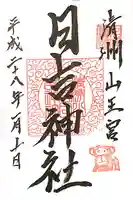 清洲山王宮
日吉神社
平成二十八年一月十日